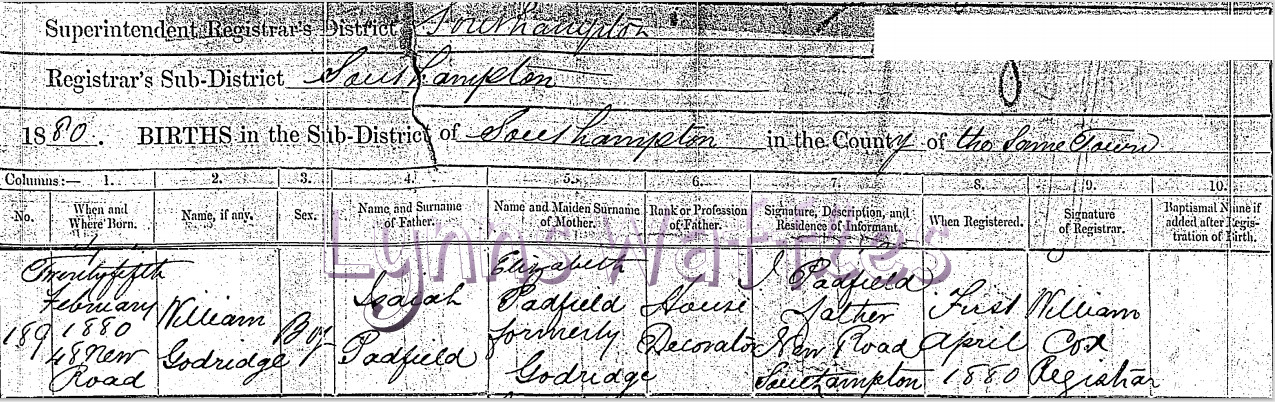 Superintendent Registrar's District Southampton
Registrar's Sub-District Southampton
1880. BIRTHS in the Sub-District of Southampton in the County of the Same Town
Columns:— 1. 2. 3. 4. 5. 6. 7. 8. 9. 10.
No. When and Where Born. Name, if any. Sex. Name and Surname of Father. Name and Maiden Surname of Mother. Rank or Profession of Father. Signature, Description, and Residence of Informant. When Registered. Signature of Registrar. Baptismal Name if added after Registration of Birth.
Lynns Waifites
189
Twentyfifth
February
1880
48 New
Road
William
Godridge
Boy
Isaiah
Padfield
Elizabeth
Padfield
formerly
Godridge
House
Decorator
I Padfield
father
New Road
Southampton
First
April
1880
William
Cox
Registrar